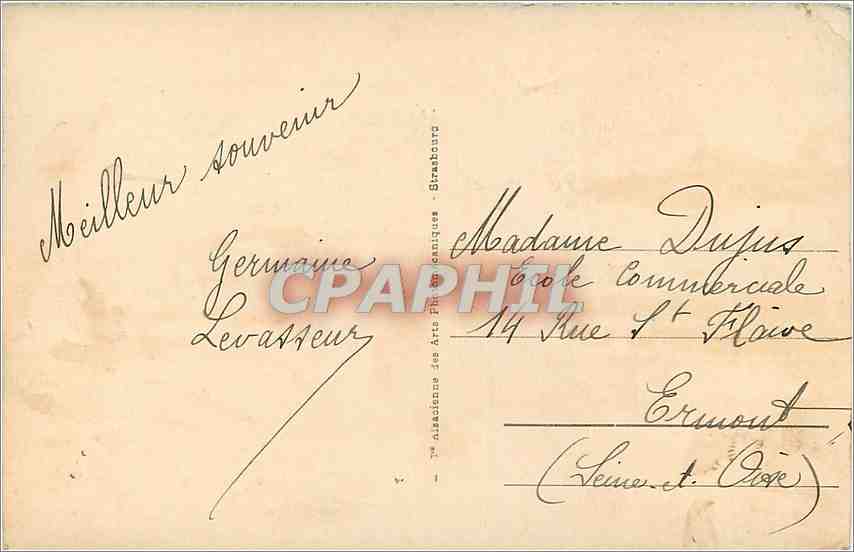 Meilleur souvenir
Germaine
Levasseur
Madame Dujus
Ecole Commerciale
14 Rue St Flaive
Ermont
(Seine-et-Oise)
- Ire Alsacienne des Arts Photomécaniques - Strasbourg -
CPAPHIL